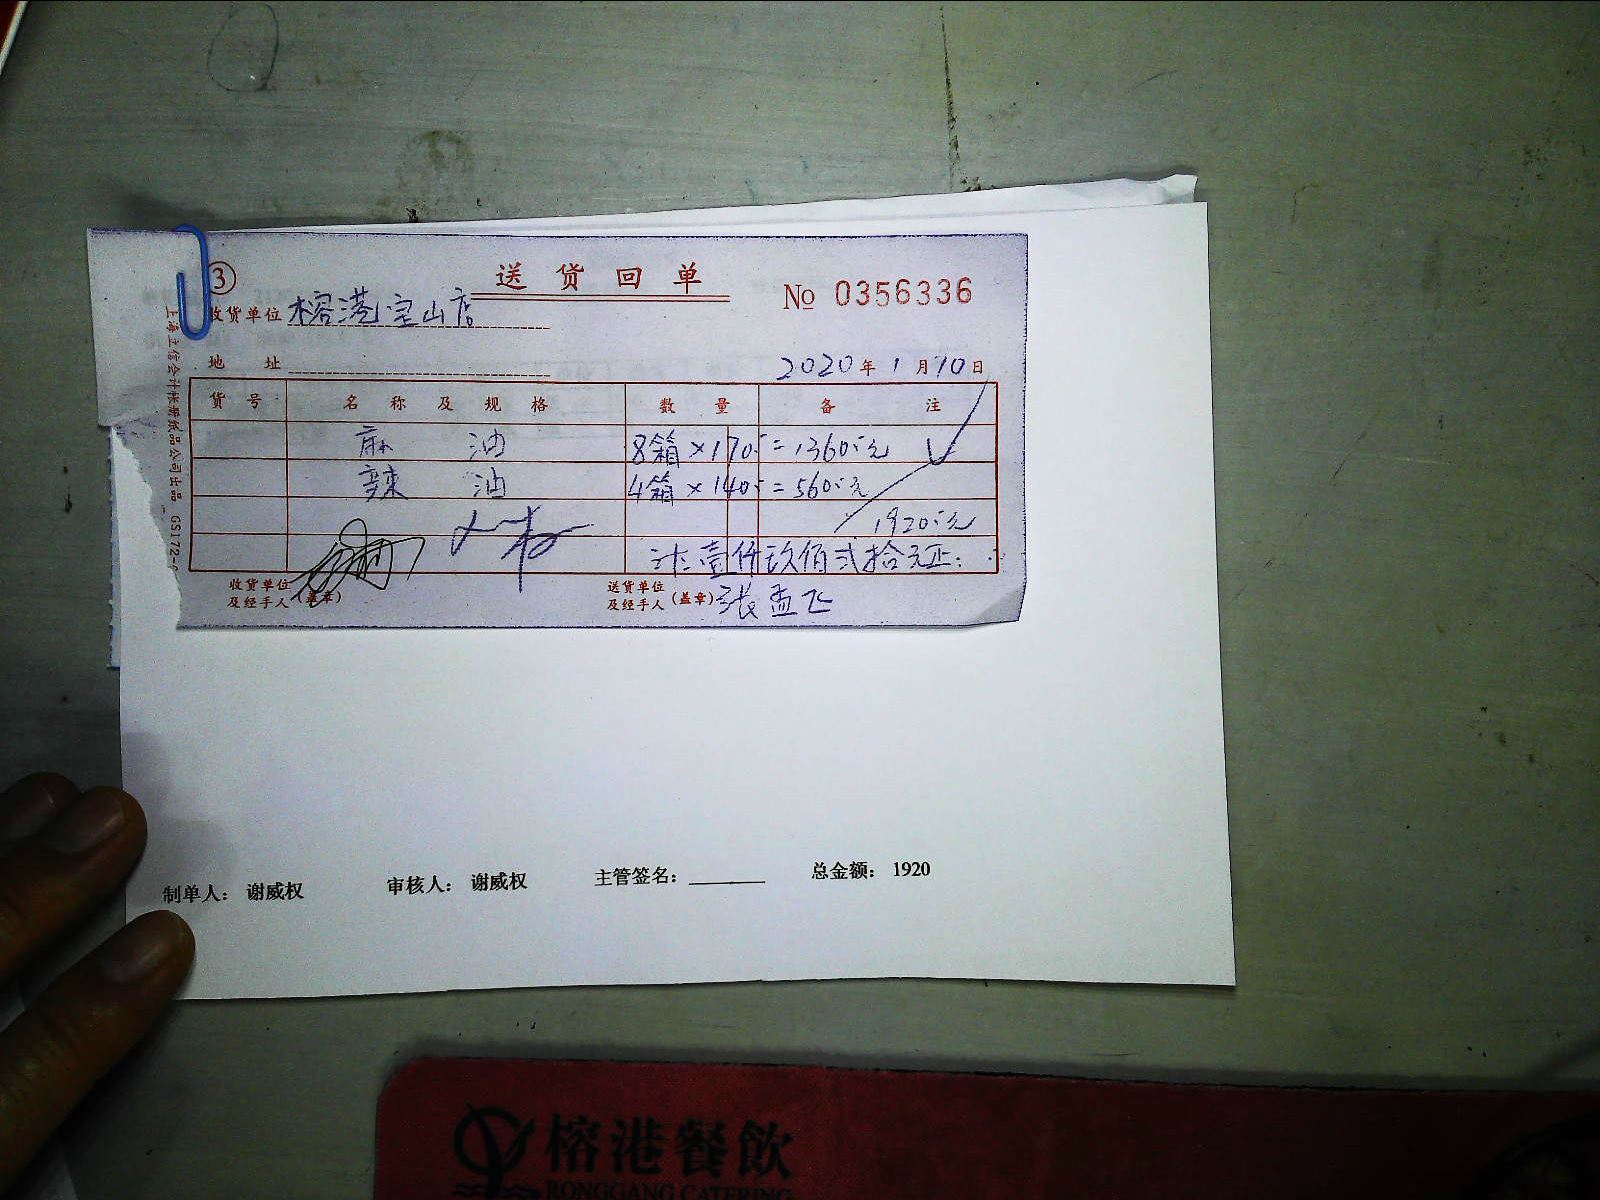 ③ 送货回单
No 0356336
收货单位 榕港宝山店
地址
2020年1月10日
货号 名称及规格 数量 备注
麻油 8箱×170.-=1360.-元
辣油 4箱×140.-=560.-元
1920.-元
计:壹仟玖佰贰拾元正:
收货单位及经手人(盖章)
送货单位及经手人(盖章) 张孟飞
上海立信会计账册纸品公司出品 GS172-
制单人: 谢威权 审核人: 谢威权 主管签名: 总金额: 1920
榕港餐飲
RONGGANG CATERING